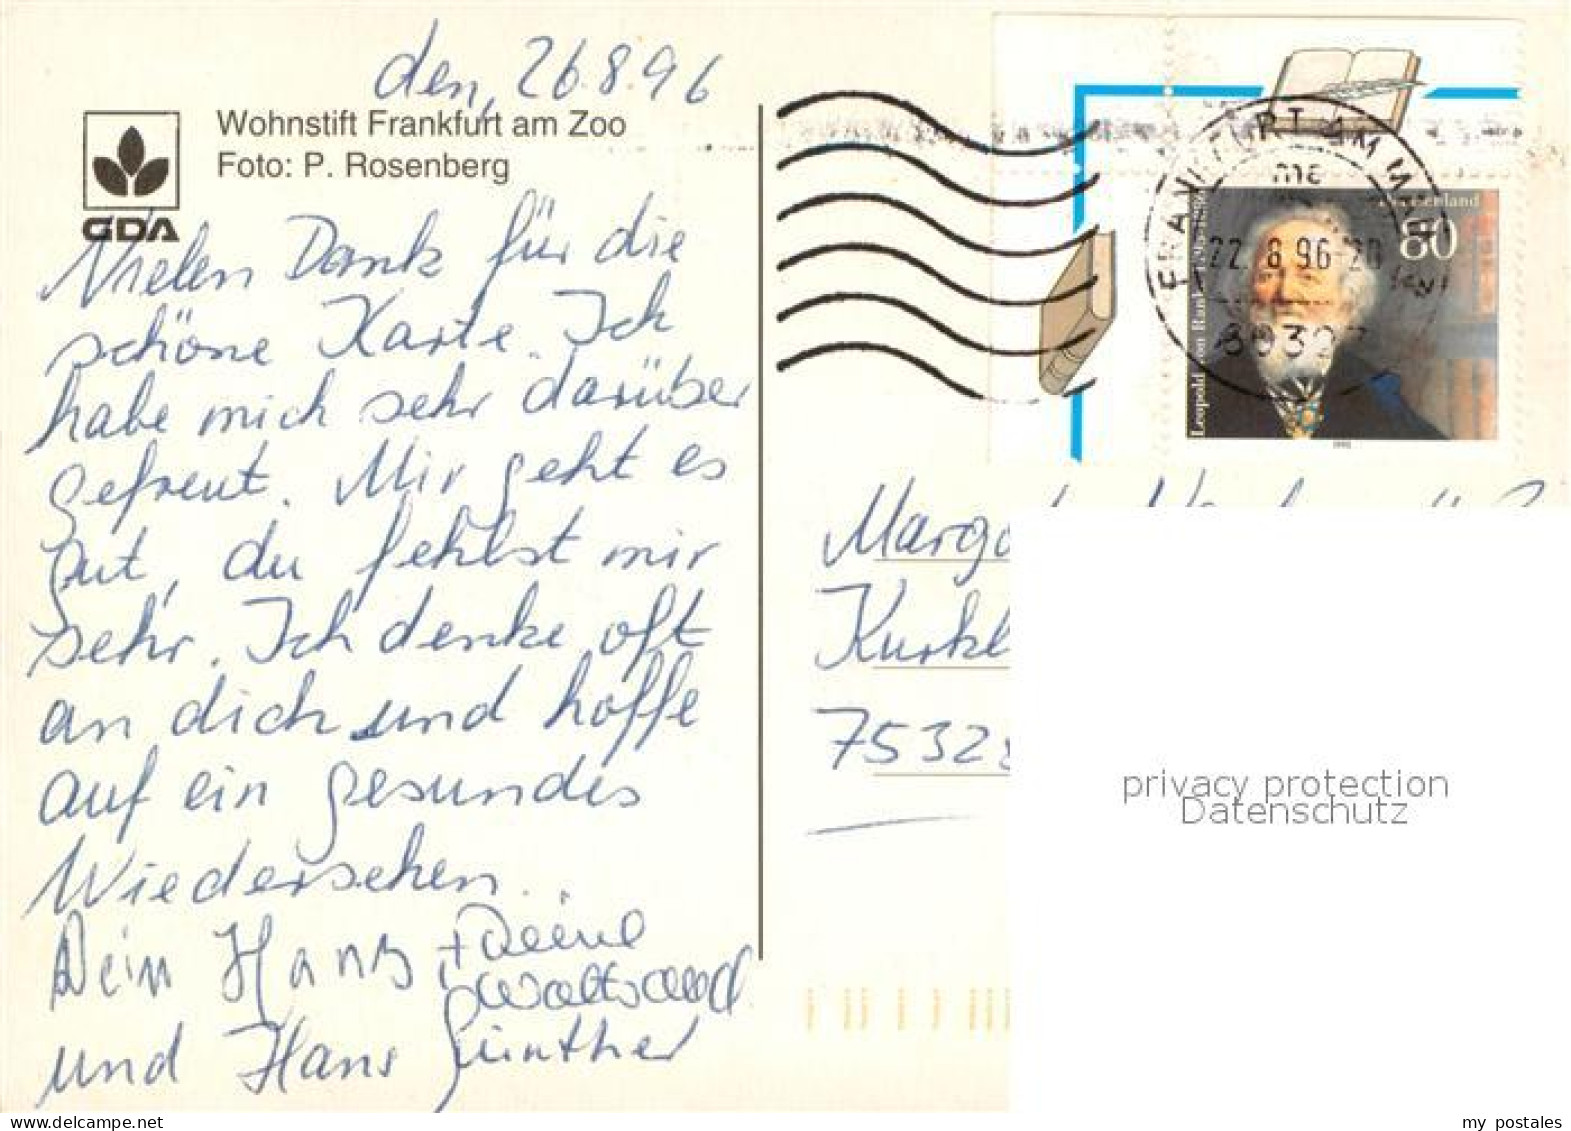 den, 26.8.96
Wohnstift Frankfurt am Zoo
Foto: P. Rosenberg
GDA
Vielen Dank für die
schöne Karte. Ich
habe mich sehr darüber
gefreut. Mir geht es
gut, du fehlst mir
sehr. Ich denke oft
an dich und hoffe
auf ein gesundes
Wiedersehen.
Dein Hans + Deine
Waltraud
und Hans Günther
FRANKFURT AM MAIN
22.8.96-20
Leopold von Ranke
80
Kurkl
75328
privacy protection
Datenschutz
my postales